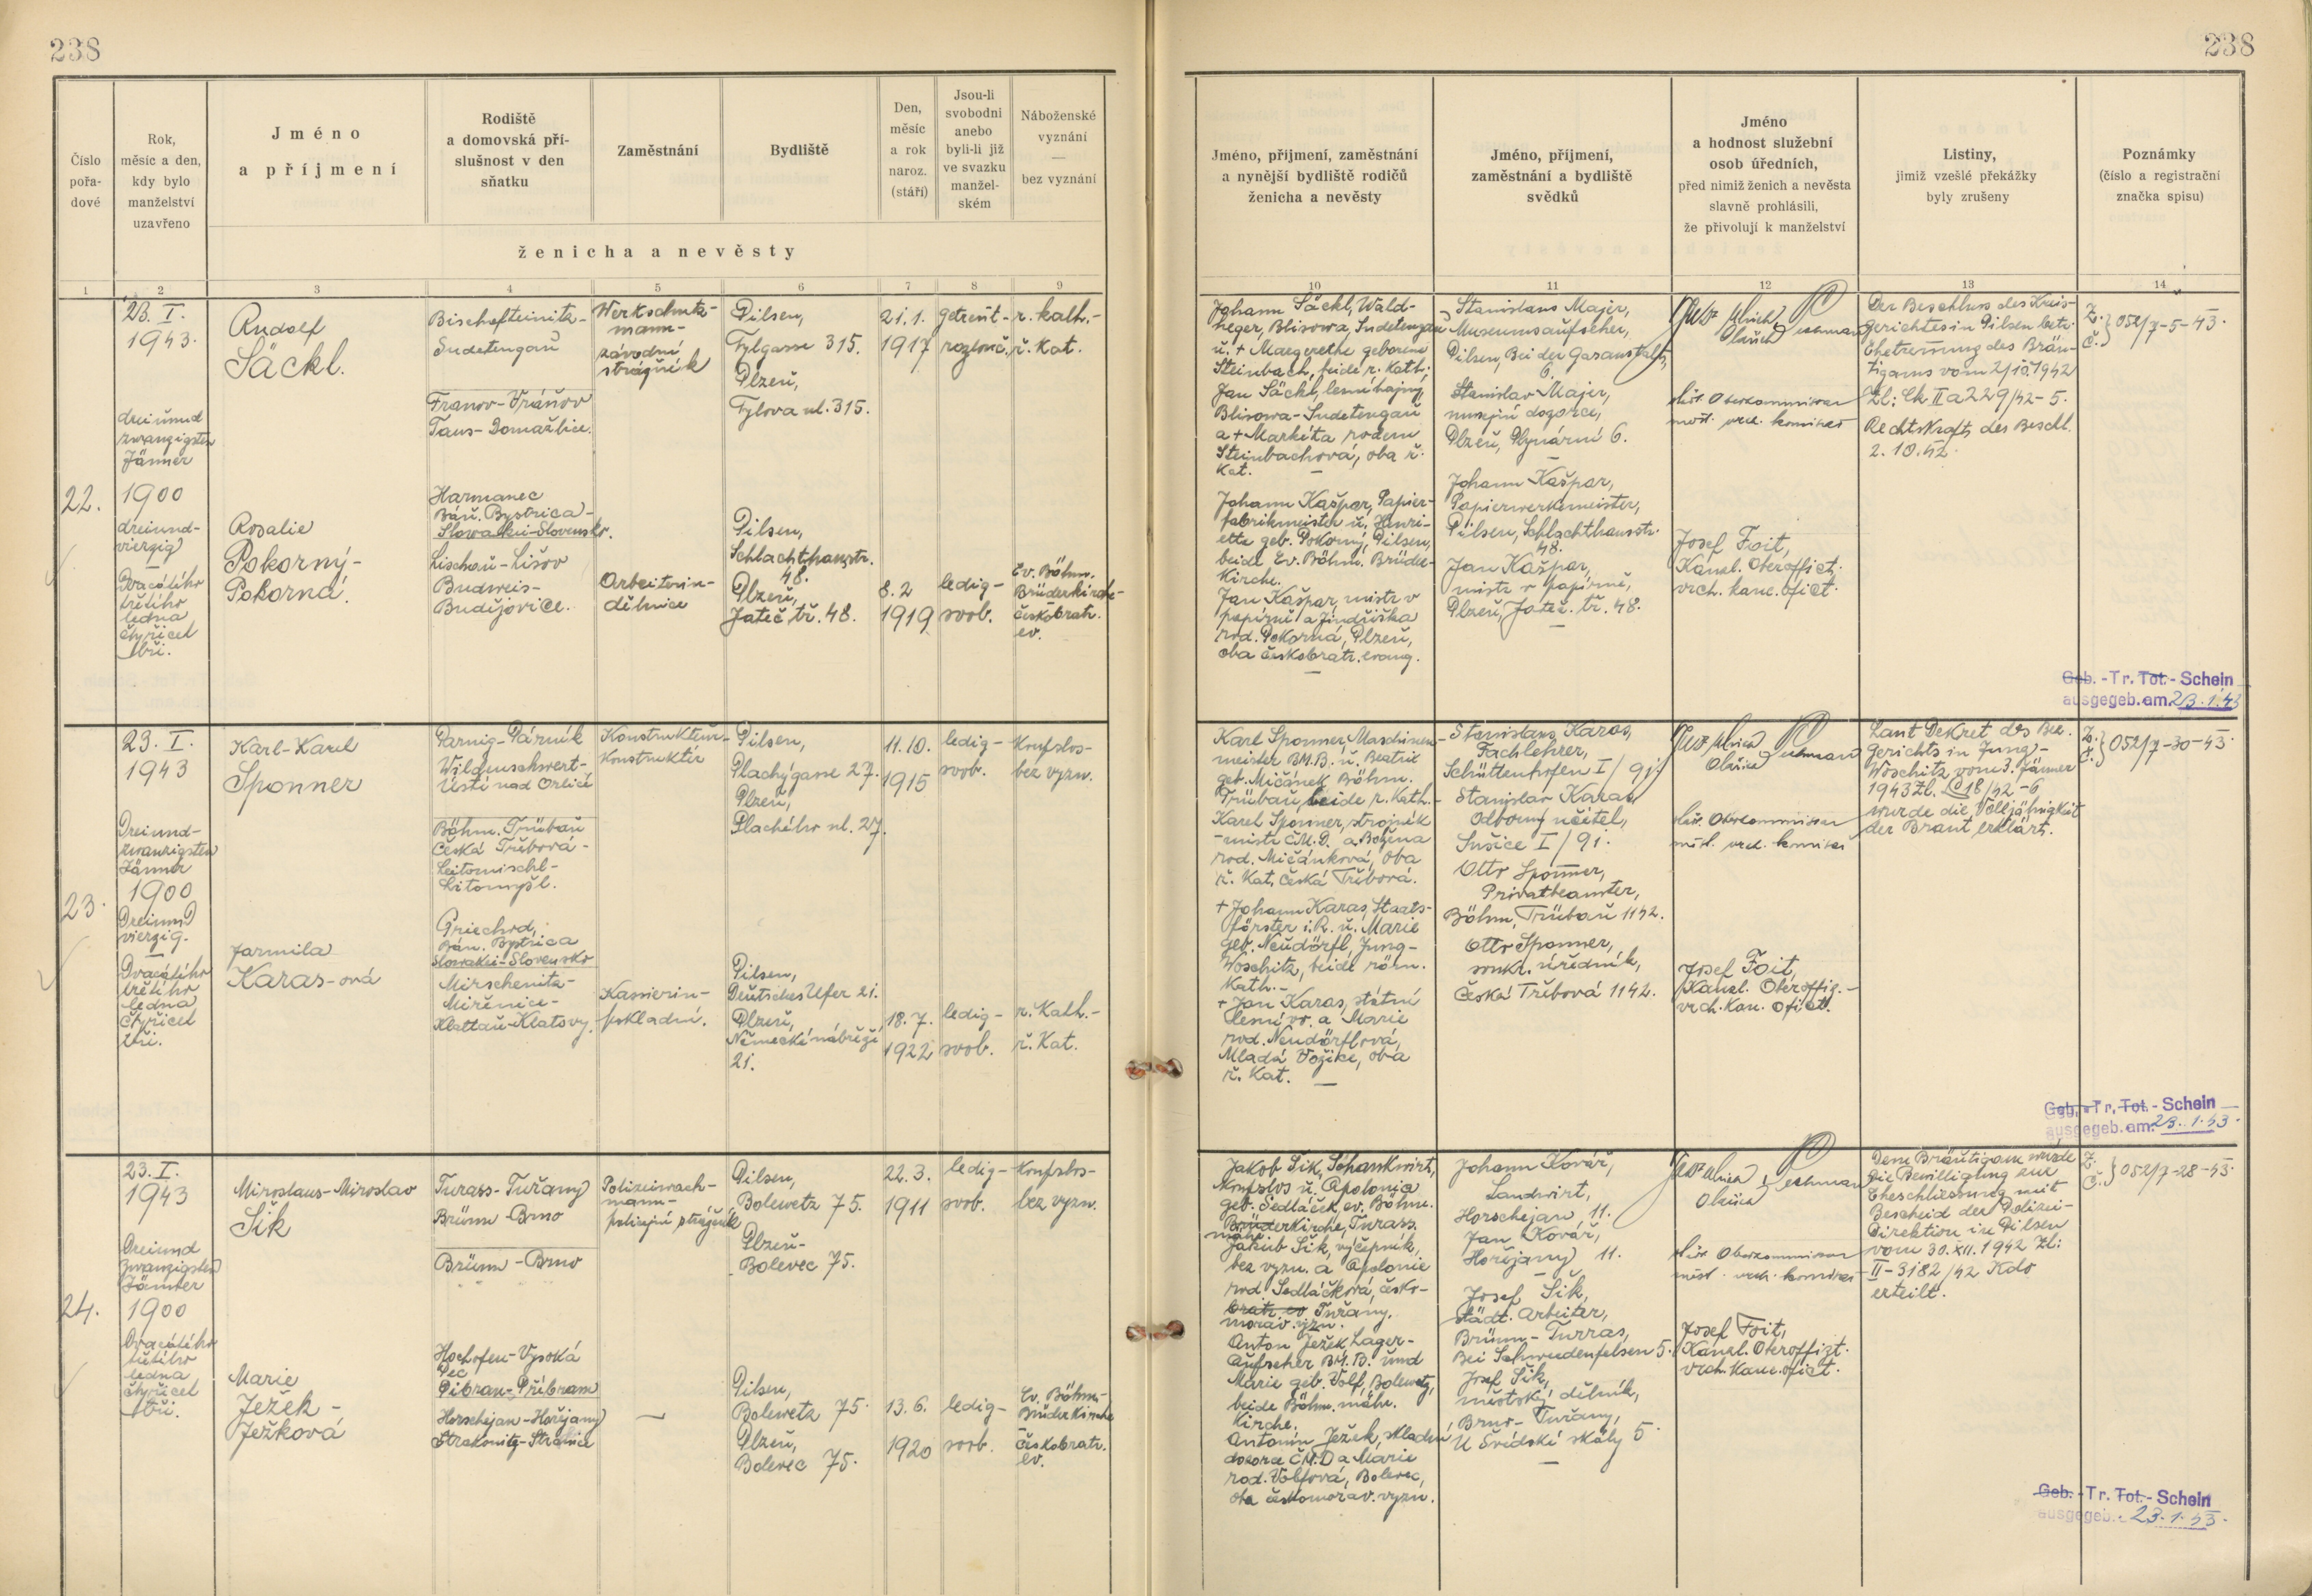 238
238
Číslo pořadové
Rok, měsíc a den, kdy bylo manželství uzavřeno
Jméno a příjmení
Rodiště a domovská příslušnost v den sňatku
Zaměstnání
Bydliště
Den, měsíc a rok naroz. (stáří)
Jsou-li svobodni anebo byli-li již ve svazku manželském
Náboženské vyznání — bez vyznání
ženicha a nevěsty
Jméno, příjmení, zaměstnání a nynější bydliště rodičů ženicha a nevěsty
Jméno, příjmení, zaměstnání a bydliště svědků
Jméno a hodnost služební osob úředních, před nimiž ženich a nevěsta slavně prohlásili, že přivolují k manželství
Listiny, jimiž vzešlé překážky byly zrušeny
Poznámky (číslo a registrační značka spisu)
1 2 3 4 5 6 7 8 9 10 11 12 13 14
22.
23. I.
1943.
dreiund
zwanzigsten
Jänner
1900
dreiund-
vierzig
—
Dvacátého
třetího
ledna
čtyřicet
tři.
Rudolf
Säckl.
Rosalie
Pokorný-
Pokorná.
Bischofteinitz-
Sudetengau
Franov-Vráňov
Taus-Domažlice.
Harmanec
Báň. Bystrica-
Slowakei-Slovensko.
Lischau-Lišov
Budweis-
Budějovice.
Werkschutz-
mann-
závodní
strážník
Arbeiterin-
dělnice
Pilsen,
Tylgasse 315.
Plzeň,
Tylova ul. 315.
Pilsen,
Schlachthausstr.
48.
Plzeň,
Jateč. tř. 48.
21. 1.
1917
8. 2
1919
getrennt-
rozlouč.
ledig-
svob.
r. kath.-
ř. kat.
Ev. Böhm.
Brüderkirche-
českobratr.
ev.
Johann Säckl, Wald-
heger, Blisowa, Sudetengau
u. + Margarethe geborene
Steinbach, beide r. Kath.;
Jan Säckl, lesní hajný,
Blisowa-Sudetengau
a + Markéta rodem
Steinbachová, oba ř.
kat. —
Johann Kašpar, Papier-
fabrikmeister u. Henri-
ette geb. Pokorný, Pilsen,
beide Ev. Böhm. Brüder-
Kirche.
Jan Kašpar, mistr v
papírně a Jindřiška
rod. Pokorná, Plzeň,
oba českobratr. evang.
—
Stanislaus Majer,
Museumsaufseher,
Pilsen, Bei der Gasanstalt,
6.
Stanislav Majer,
musejní dozorce,
Plzeň, Plynární 6.
—
Johann Kašpar,
Papierwerkmeister,
Pilsen, Schlachthausstr.
48.
Jan Kašpar,
mistr v papírně,
Plzeň, Jateč. tř. 48.
—
städt. Oberkommissar
měst. vrch. komisař
Josef Foit,
Kanzl. Oberoffizt.
vrch. kanc. ofict.
Der Beschluss des Kreis-
gerichtes in Pilsen betr.
Ehetrennung des Bräu-
tigams vom 2/10.1942
Zl: Ck II a 229/42-5.
Rechtskraft des Beschl.
2. 10. 42.
Z.
č. } 052/7-5-43.
Geb. -Tr. Tot.- Schein
ausgegeb. am 23.1.43
23.
23. I.
1943
Dreiund-
zwanzigsten
Jänner
1900
Dreiund
vierzig.
—
Dvacátého
třetího
ledna
čtyřicet
tři.
Karl-Karel
Sponner
Jarmila
Karas-ová
Parnig-Párník
Wildenschwert-
Ústí nad Orlicí
Böhm. Trübau
Česká Třebová-
Leitomischl-
Litomyšl.
Griechod,
Báň. Bystrica
Slowakei-Slovensko
Mirschenitz-
Miřenice-
Klattau-Klatovy.
Konstrukteur-
Konstruktér
Kassierin-
pokladní.
Pilsen,
Plachýgasse 27.
Plzeň,
Plachého ul. 27.
Pilsen,
Deutsches Ufer 21.
Plzeň,
Německé nábřeží
21.
11. 10.
1915
18. 7.
1922
ledig-
svob.
ledig-
svob.
Konfslos-
bez vyzn.
r. Kath.-
ř. Kat.
Karl Sponner, Maschinen-
meister BM.B. u. Beatrix
geb. Mičánek, Böhm.
Trübau, beide r. Kath.-
Karel Sponner, strojník
-mistr ČM.D. a Božena
rod. Mičánková, oba
ř. Kat. Česká Třebová.
+ Johann Karas, Staats-
förster i. R. u. Marie
geb. Neudörfl, Jung-
Woschitz, beide röm.
Kath.-
+ Jan Karas, státní
lesní vr. a Marie
rod. Neudörflová,
Mladá Vožice, oba
ř. Kat. —
Stanislaus Karas,
Fachlehrer,
Schüttenhofen I/9j.
Stanislav Karas,
odborný učitel,
Sušice I/9j.
Otto Sponner,
Privatbeamter,
Böhm. Trübau 1142.
Otto Sponner,
soukr. úředník,
Česká Třebová 1142.
städt. Oberkommissar
měst. vrch. komisař
Josef Foit,
Kanzl. Oberoffiz.-
vrch. kan. ofict.
Laut Dekret des Bez.
gerichts in Jung-
Woschitz vom 3. Jänner
1943 Zl. P 18/42-6
wurde die Volljährigkeit
der Braut erklärt.
Z.
č. } 052/7-30-43.
Geb. -Tr, Tot.- Schein
ausgegeb. am. 23. 1. 43.
24.
23. I.
1943
Dreiund
zwanzigsten
Jänner
1900
Dvacátého
třetího
ledna
čtyřicet
tři.
Miroslaus-Miroslav
Šik
Marie
Ježek-
Ježková
Turass-Tuřany
Brünn-Brno
Brünn-Brno
Hochofen-Vysoká
Pec
Pibran-Příbram
Horschejan-Hořejany
Strakonitz-Strakonice
Polizeiwach-
mann-
policejní strážník
—
Pilsen,
Bolewetz 75.
Plzeň-
Bolevec 75.
Pilsen,
Bolewetz 75.
Plzeň,
Bolevec 75.
22. 3.
1911
13. 6.
1920
ledig-
svob.
ledig-
svob.
Konfslos-
bez vyzn.
Ev. Böhm-
Brüderkirche
českobratr.
ev.
Jakob Šik, Schankwirt,
Konfslos u. Apolonia
geb. Sedláček, ev. Böhm.
Brüderkirche, Turass.
mähr.
Jakub Šik, výčepník,
bez vyzn. a Apolonie
rod. Sedláčková, česko-
bratr. ev Tuřany.
morav. vyzn.
Anton Ježek, Lager-
aufseher BM.B. und
Marie geb. Volf, Bolewetz,
beide Böhm. mähr.
Kirche.
Antonín Ježek, skladní
dozorce ČM.D a Marie
rod. Volfová, Bolevec,
oba českomorav. vyzn.
Johann Kovář,
Landwirt,
Horschejan 11.
Jan Kovář,
Hořejany 11.
—
Josef Šik,
städt. Arbeiter,
Brünn-Turras,
Bei Schwedenfelsen 5.
Josef Šik,
městský dělník,
Brno-Tuřany,
U Švédské skály 5.
—
städt. Oberkommissar
měst. vrch. komisař
Josef Foit,
Kanzl. Oberoffizt.
vrch. kanc. ofict.
Dem Bräutigam wurde
die Bewilligung zur
Eheschliessung mit
Bescheid der Polizei-
direktion in Pilsen
vom 30. XII. 1942 Zl:
II-3182/42 Kdo
erteilt.
Z.
Č. } 052/7-28-43.
Geb. -Tr. Tot.- Schein
ausgegeb. 23. 1. 43.